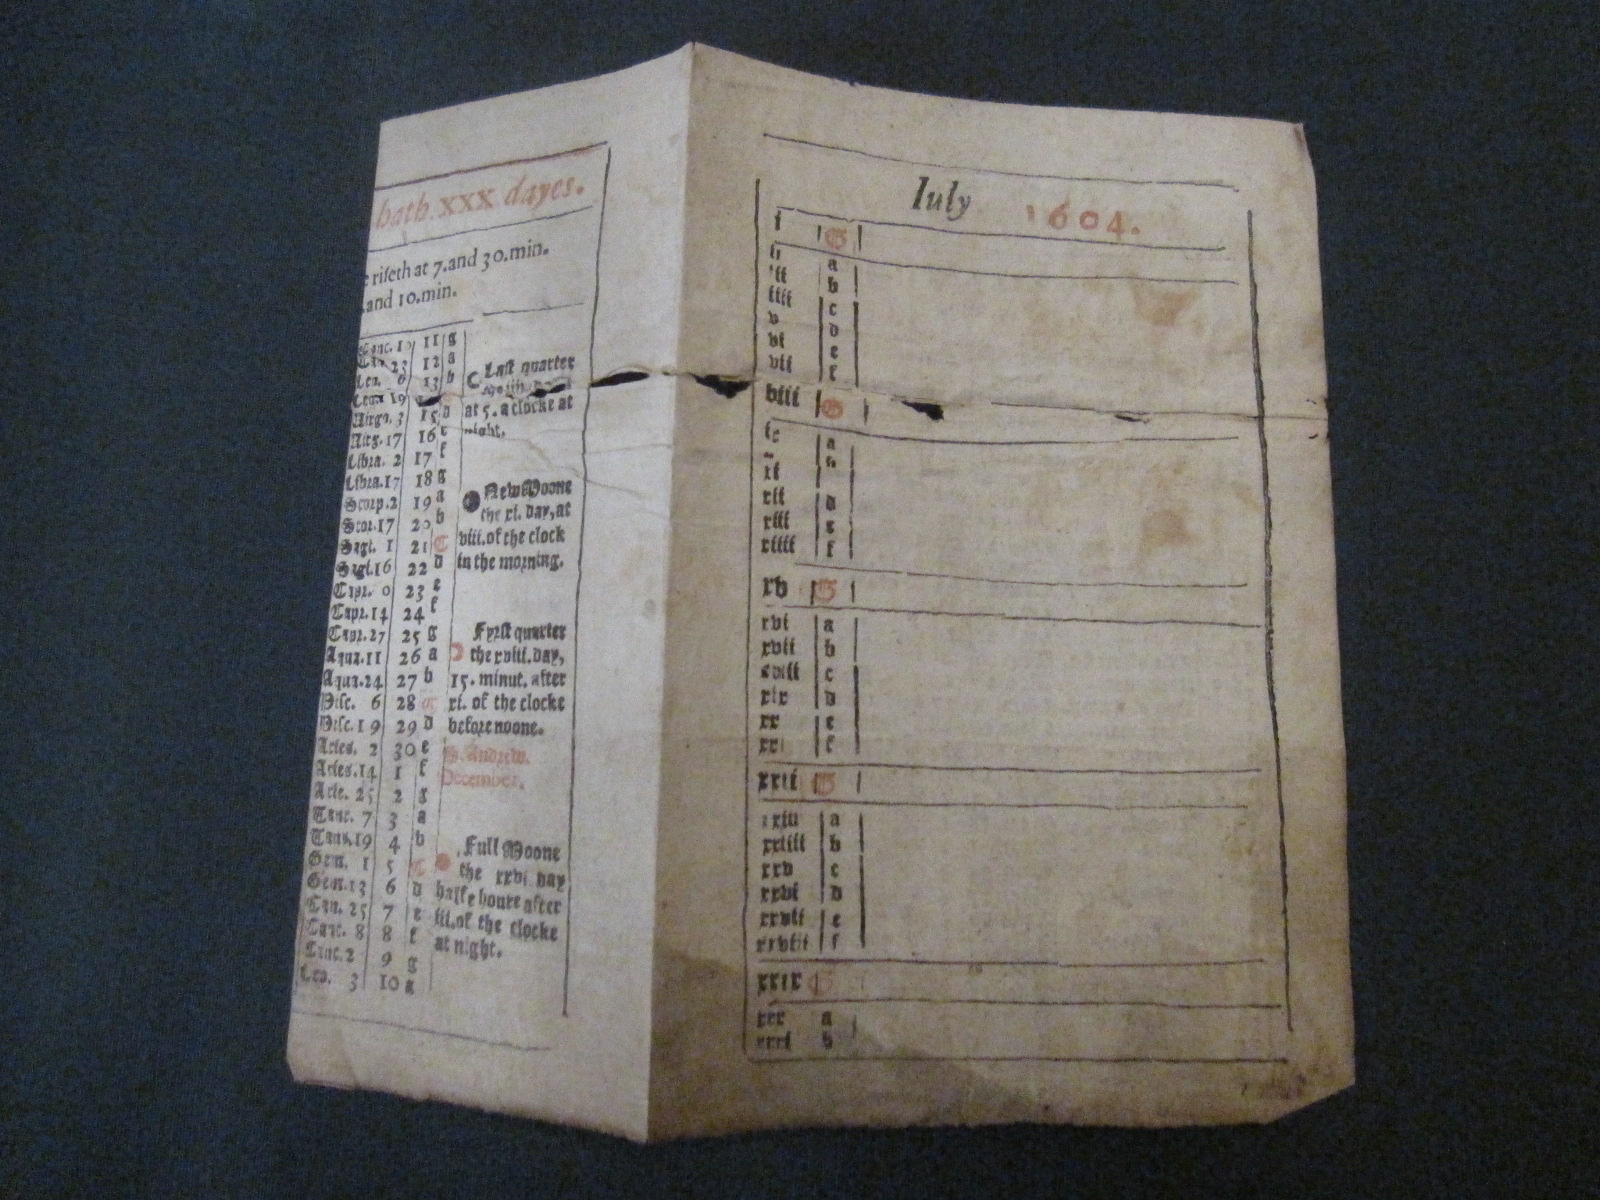 hath XXX dayes.
e riseth at 7.and 30.min.
.and 10.min.
11 g
Can. 23 12 a
Leo. 6 13 b
Leo. 19
Virgo. 3 15 d
Virg. 17 16 e
Libra. 2 17 f
Libra. 17 18 g
Scorp. 2 19 a
Scor. 17 20 b
Sagi. 1 21 C
Sagi. 16 22 d
Capr. 0 23 e
Capr. 14 24 f
Capr. 27 25 g
Aqua. 11 26 a
Aqua. 24 27 b
Pisc. 6 28
Pisc. 19 29 d
Aries. 2 30 e
Aries. 14 1 f
Arie. 25 2 g
Taur. 7 3 a
Taur. 19 4 b
Gem. 1 5 C
Gem. 13 6 d
7 e
8 f
9 g
Leo. 3 10 a
Last quarter
at 5. a clocke at
night.
New Moone
the xi. day, at
viii. of the clock
in the morning.
Fyrst quarter
the xviii. day,
15. minut. after
xi. of the clocke
before noone.
S. Andrew.
December.
Full Moone
the xxvi day
halfe houre after
iii. of the clocke
at night.
Iuly 1604.
i G
ii a
iii b
iiii c
v d
vi e
vii f
viii G
ix a
b
xi
xii d
xiii e
xiiii f
xv G
xvi a
xvii b
xviii c
xix d
xx e
xxi f
xxii G
xxiii a
xxiiii b
xxv c
xxvi d
xxvii e
xxviii f
xxix G
xxx a
xxxi b